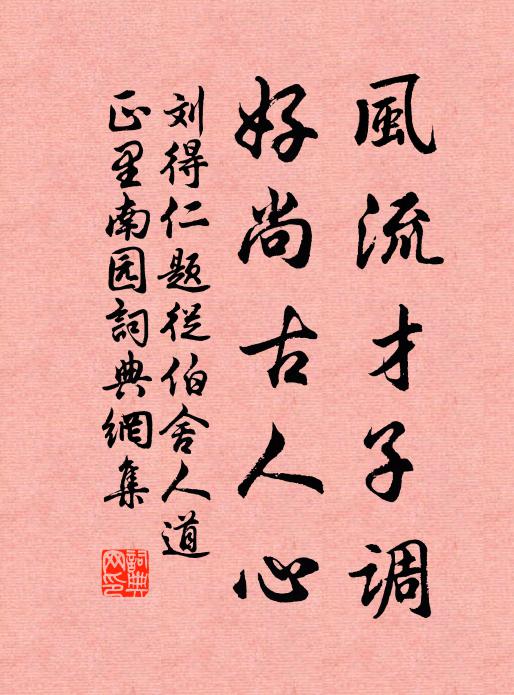 風流才子調
好尚古人心
刘得仁题從伯舍人道
正里南园詞典網集
詞典網印